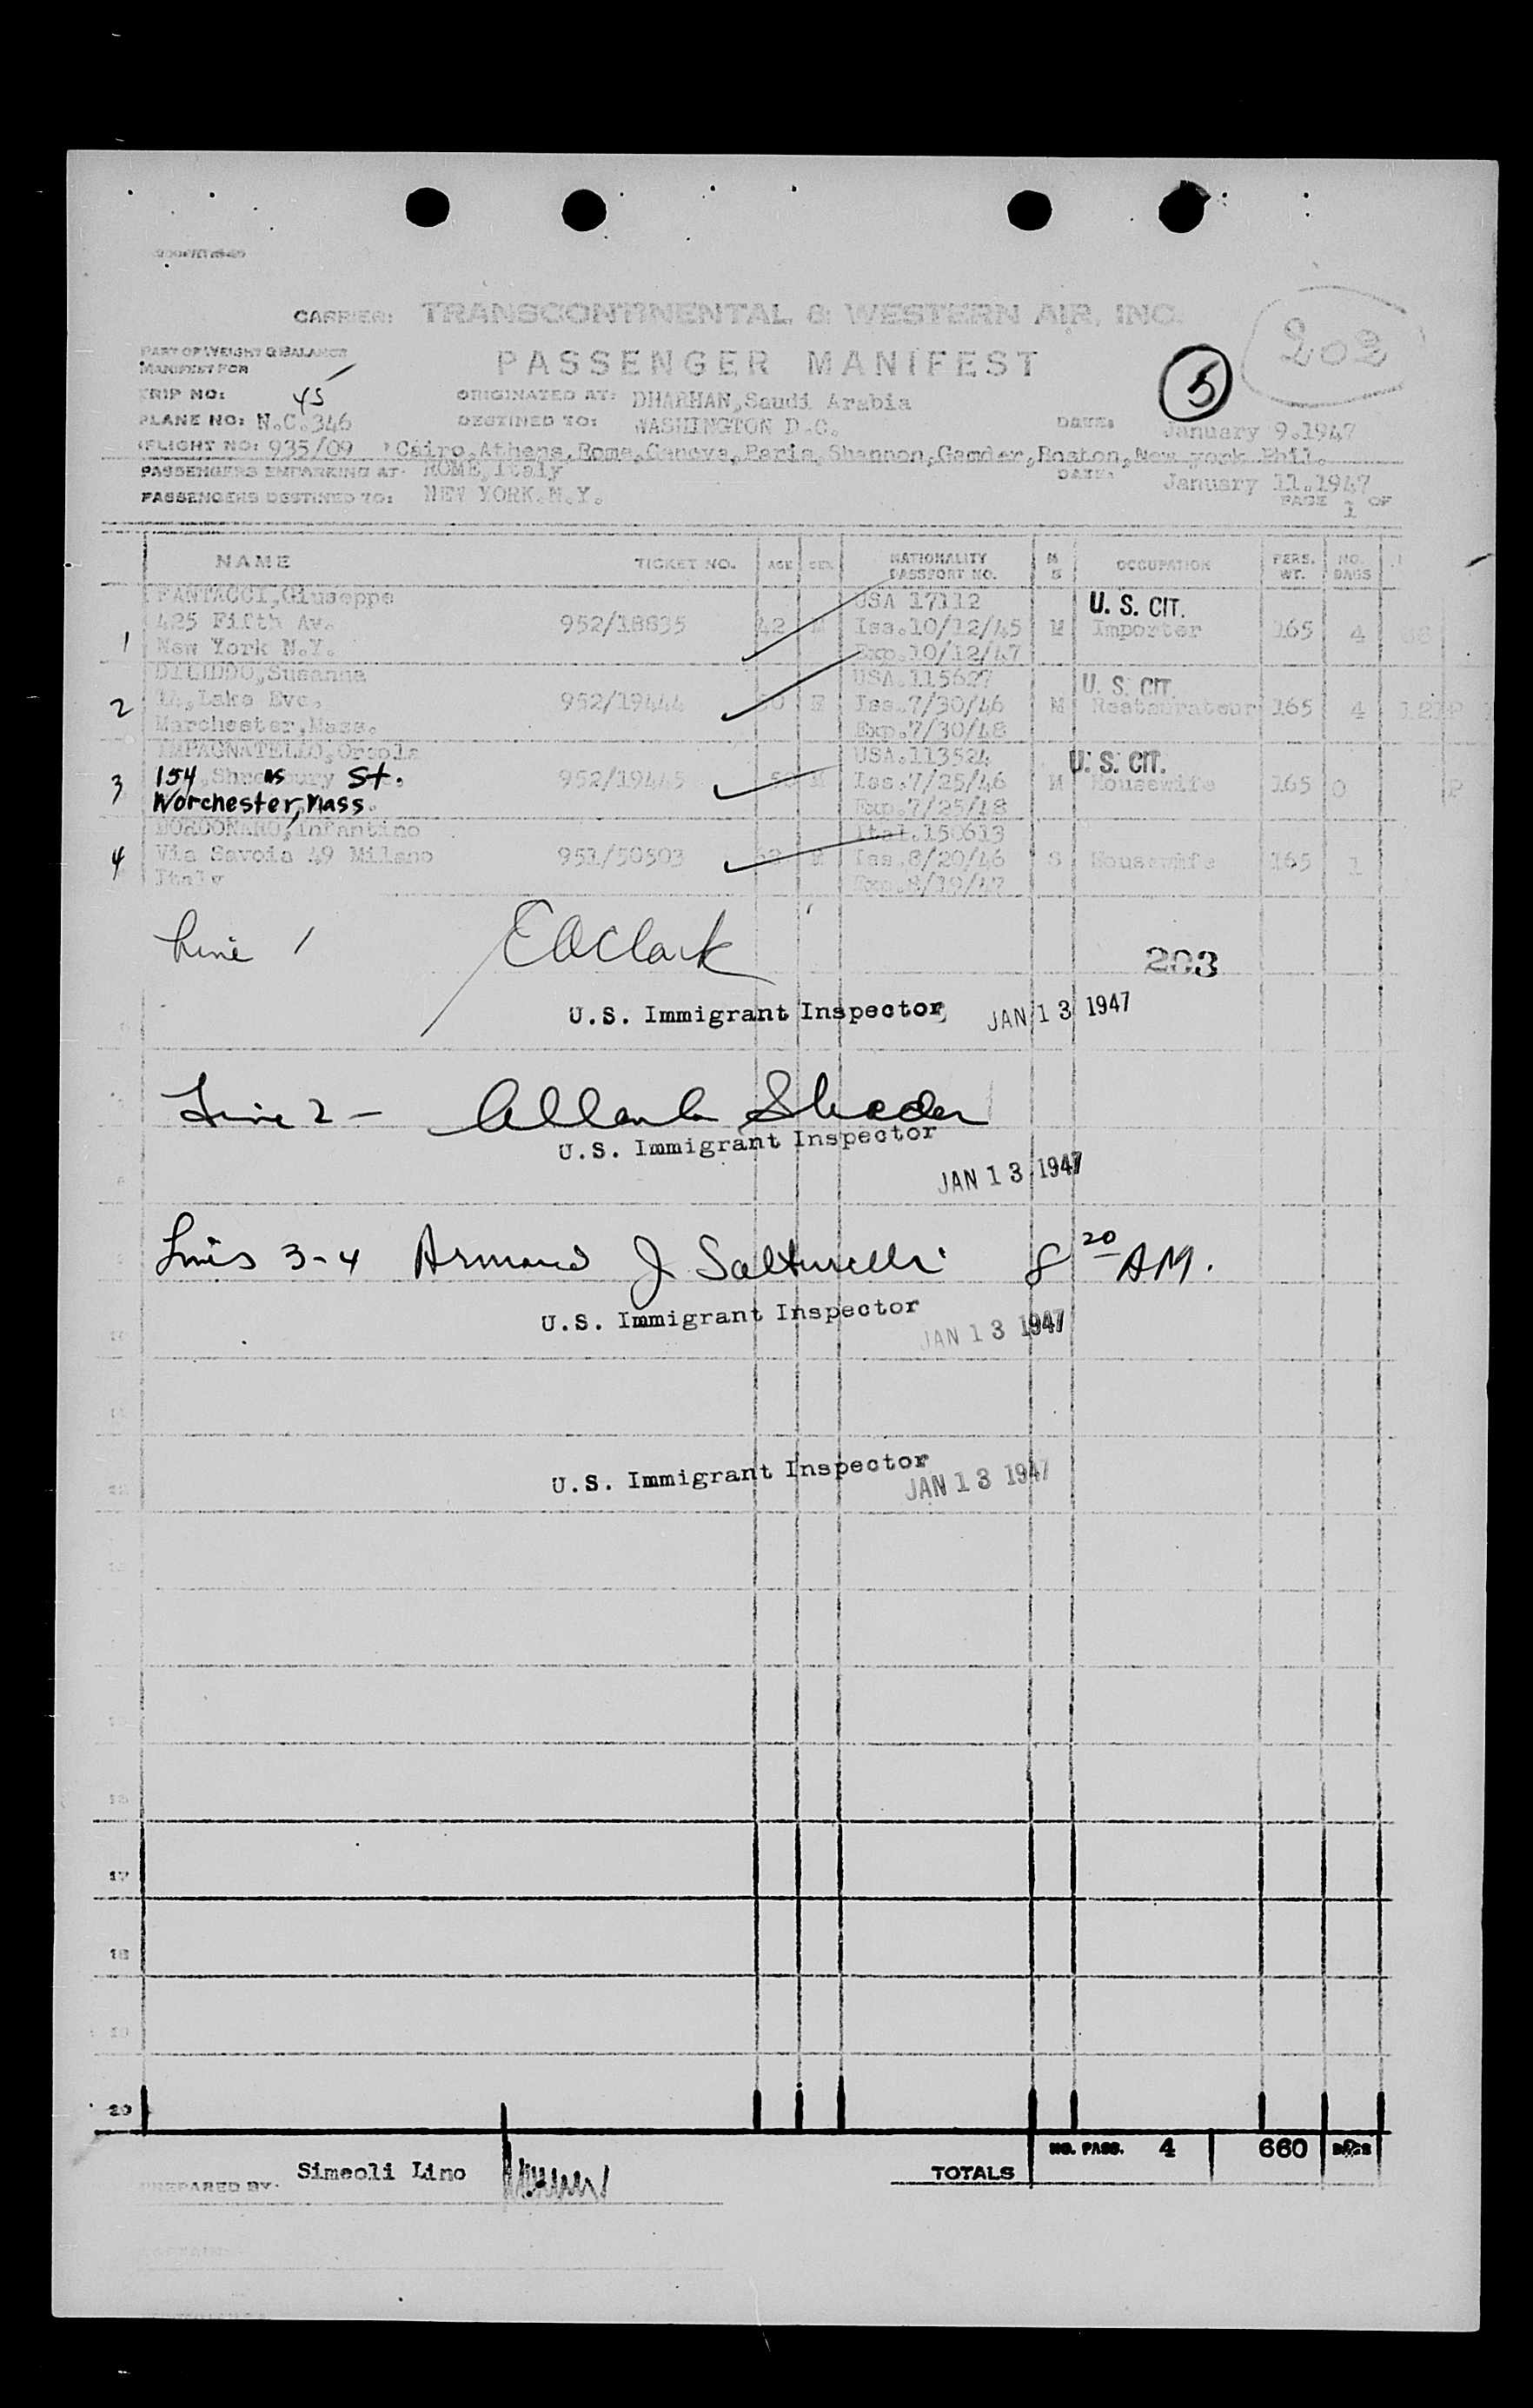 CARRIER: TRANSCONTINENTAL & WESTERN AIR, INC.
202
PART OF WEIGHT & BALANCE
MANIFEST FOR
PASSENGER MANIFEST
5
TRIP NO: 45
ORIGINATED AT: DHARHAN, Saudi Arabia
PLANE NO: N.C.346
DESTINED TO: WASHINGTON D.C.
DATE: January 9.1947
FLIGHT NO: 935/09 Cairo,Athens,Rome,Geneva,Paris,Shannon,Gander,Boston,New york Phil.
PASSENGERS EMPARKING AT: ROME,Italy
DATE: January 11.1947
PASSENGERS DESTINED TO: NEW YORK.N.Y.
PAGE 1 OF
NAME TICKET NO. AGE SEX NATIONALITY PASSPORT NO. M S OCCUPATION PERS. WT. NO. BAGS
FANTACCI,Giuseppe USA 17112 U. S. CIT.
425 Fifth Av. 952/18835 42 M Iss.10/12/45 M Importer 165 4 68
1 New York N.Y. Exp.10/12/47
DILIDDO,Susanna USA.115627 U. S. CIT.
2 14,Lake Eve. 952/19444 Iss.7/30/46 M Restaurateur 165 4
Marchester,Mass. Exp.7/30/48
IMPAGNATELLO,Orsola USA.113524 U. S. CIT.
3 154 Shrewsbury St. 952/19445 Iss.7/25/46 M Housewife 165 0 P
Worchester, Mass. Exp.7/25/48
BORDONARO,Infantino Ital.150613
4 Via Savoia 49 Milano 951/50503 Iss.8/20/46 S Housewife 165 1
Italy Exp.8/19/47
Line 1 E A Clark
203
U.S. Immigrant Inspector JAN 13 1947
Line 2 -
U.S. Immigrant Inspector
JAN 13 1947
Lines 3-4 Armand J 8 20 AM.
U.S. Immigrant Inspector
JAN 13 1947
U.S. Immigrant Inspector JAN 13 1947
17
18
19
20
NO. PASS. 4 660 BAGS
PREPARED BY: Simeoli Lino
TOTALS